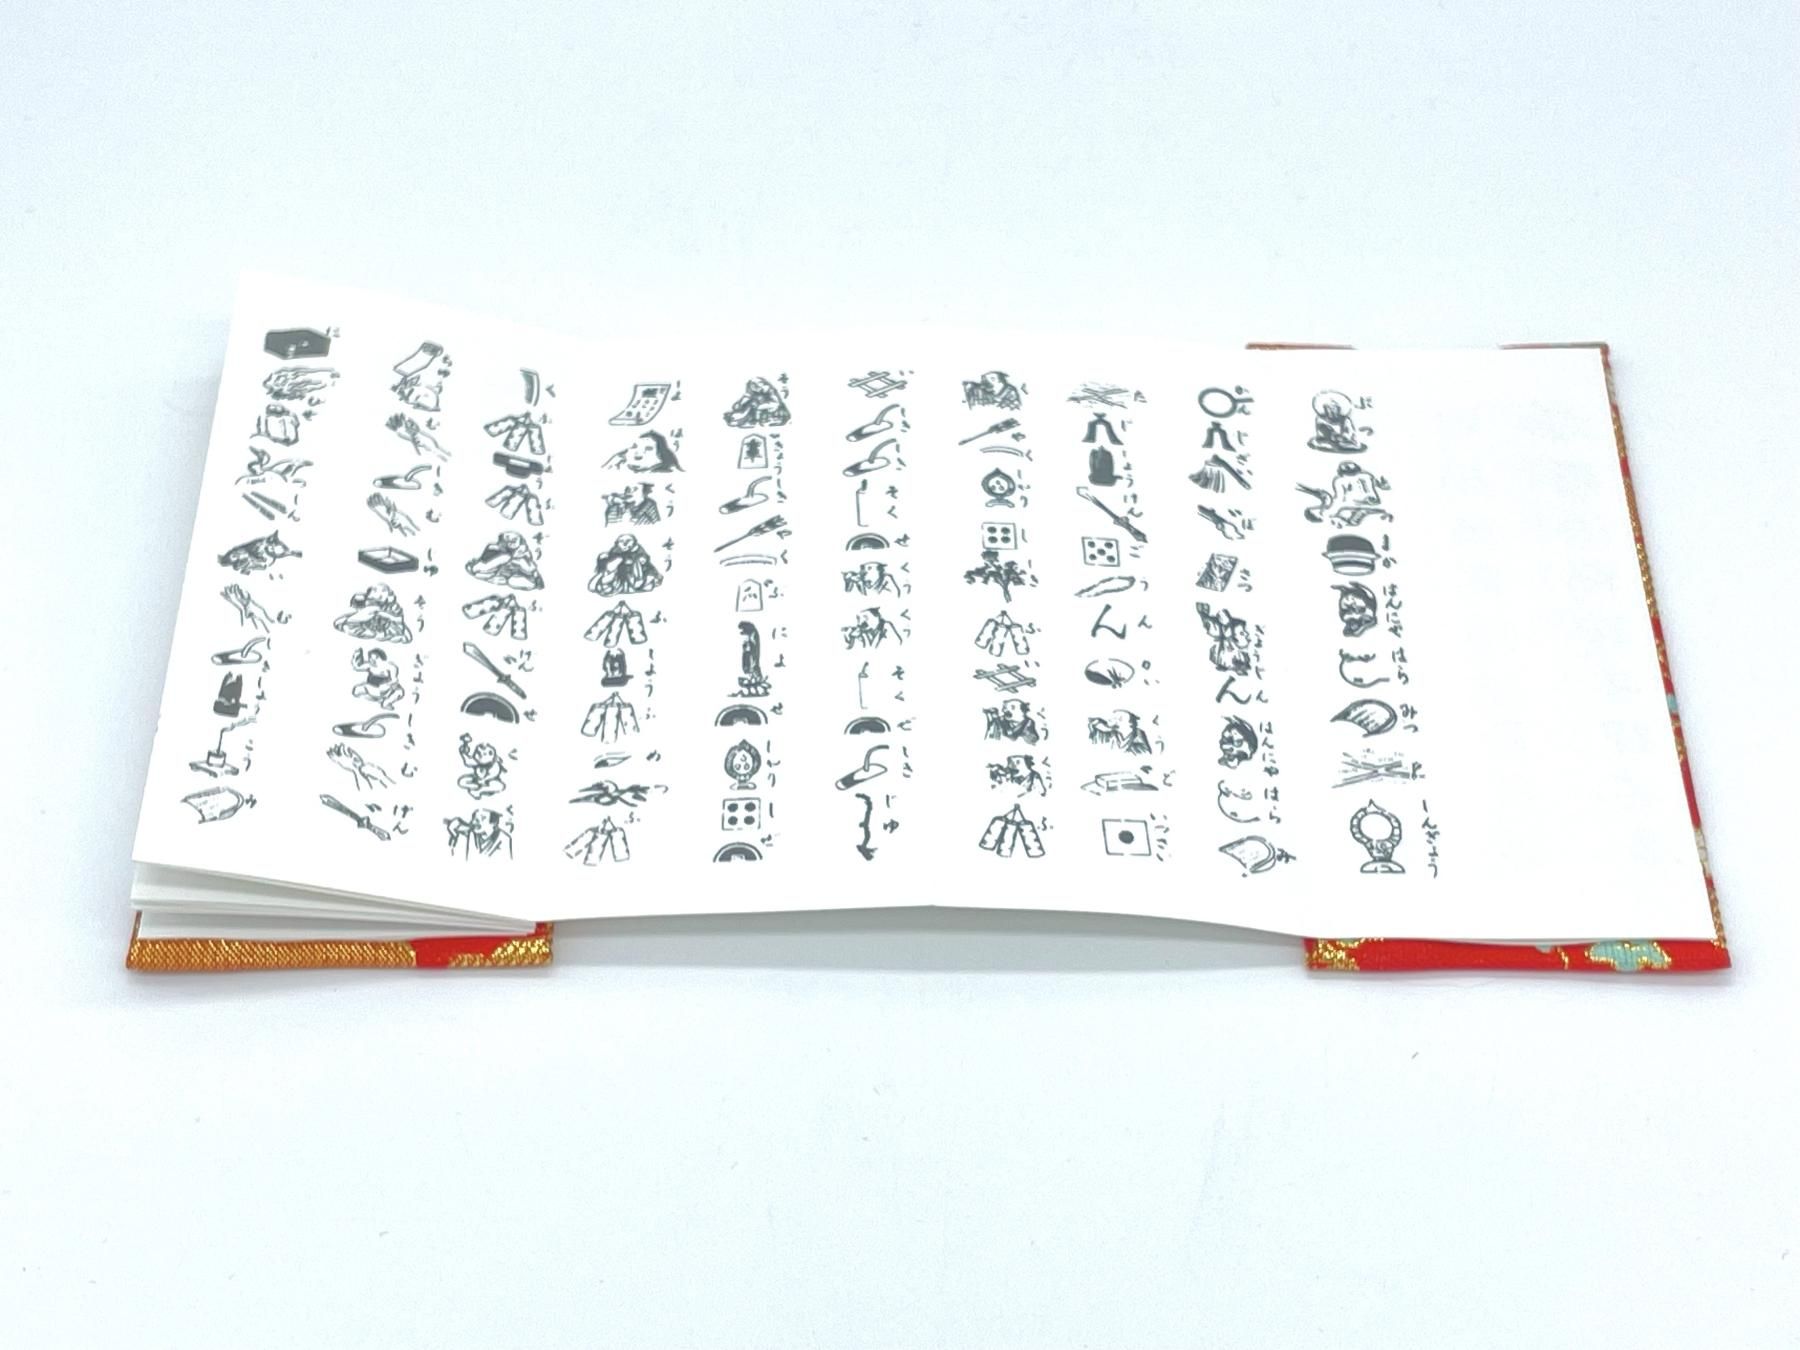 ぶつ せつ まか はんにや はら みつ た しんぎよう
かん じ ざい ぼ さつ ぎようじん はんにや はら み
た じ しよう けん ご う ん かい くう ど いつさい
く やく しやり し しき ふ い くう くう ふ
い しき しき そく ぜ くう くう そく ぜ しき じゆ
そう ぎよう しき や く ぶ によ ぜ しやり し ぜ
しよ ほう くう そう ふ しよう ふ め つ ふ
く ふ じよう ふ ぞう ふ げん ぜ こ くう
ちゆう む しき む じゆ そう ぎよう しき む げん
に び ぜ つ しん い む しき しよう こう み